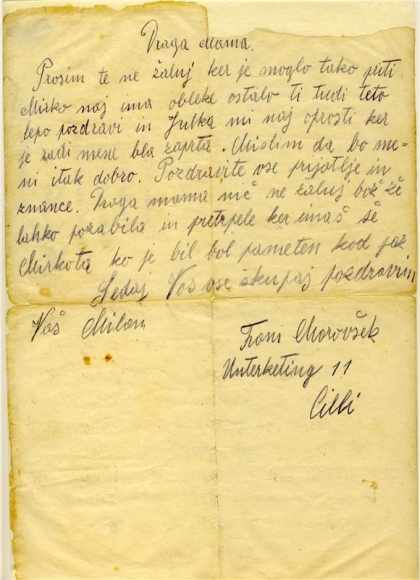 Draga Mama.
Prosim te ne žaluj ker je moglo tako priti
Mirko naj ima obleke ostalo ti tudi teto
lepo pozdravi in Julka mi naj oprosti ker
je radi mene bla zaprta. Mislim da bo me-
ni itak dobro. Pozdravite vse prijatlje in
znance. Draga mama nič ne žaluj boš že
lahko pozabila in pretrpele ker imaš še
Mirkota ko je bil bol pameten kod jaz
Sedaj Vas vse skupaj pozdravim
Vaš Milan
Frani Morovšek
Unterketing 11
Cilli